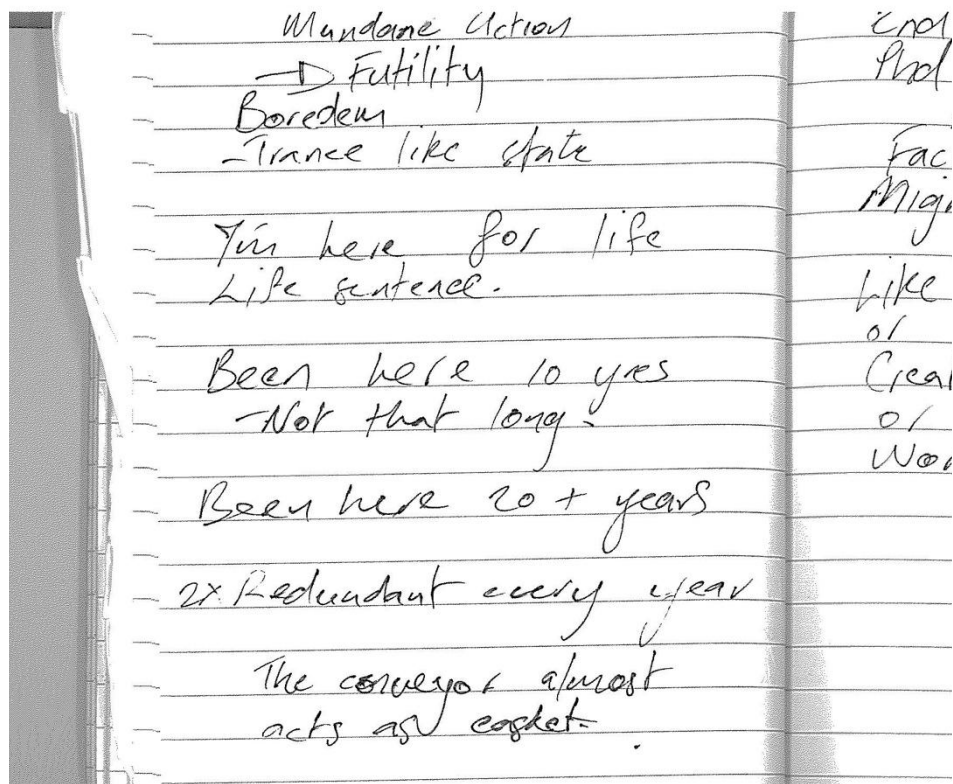 Mundane Action
→ Futility
Boredem
-Trance like state
You're here for life
Life sentence.
Been here 10 yres
-Not that long.
Been here 20 + years
2x Redundant every year
The conveyor almost
acts as casket.
End
Phd
Fac
Mig
Like
or
Creat
or
Wor